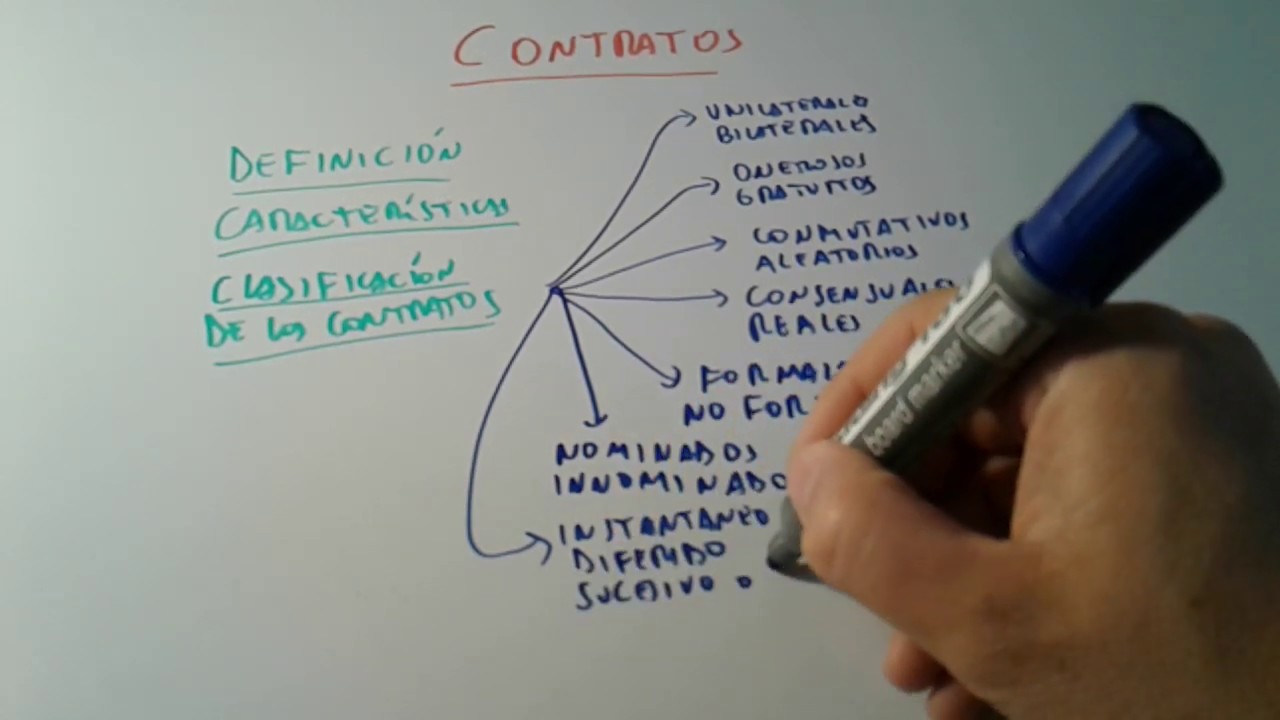 CONTRATOS
DEFINICIÓN
CARACTERÍSTICAS
CLASIFICACIÓN
DE LOS CONTRATOS
UNILATERALES
BILATERALES
ONEROSOS
GRATUITOS
CONMUTATIVOS
ALEATORIOS
CONSENSUALES
REALES
NO
NOMINADOS
INNOMINADO
INSTANTANEO
DIFERIDO
SUCESIVO O
board marker